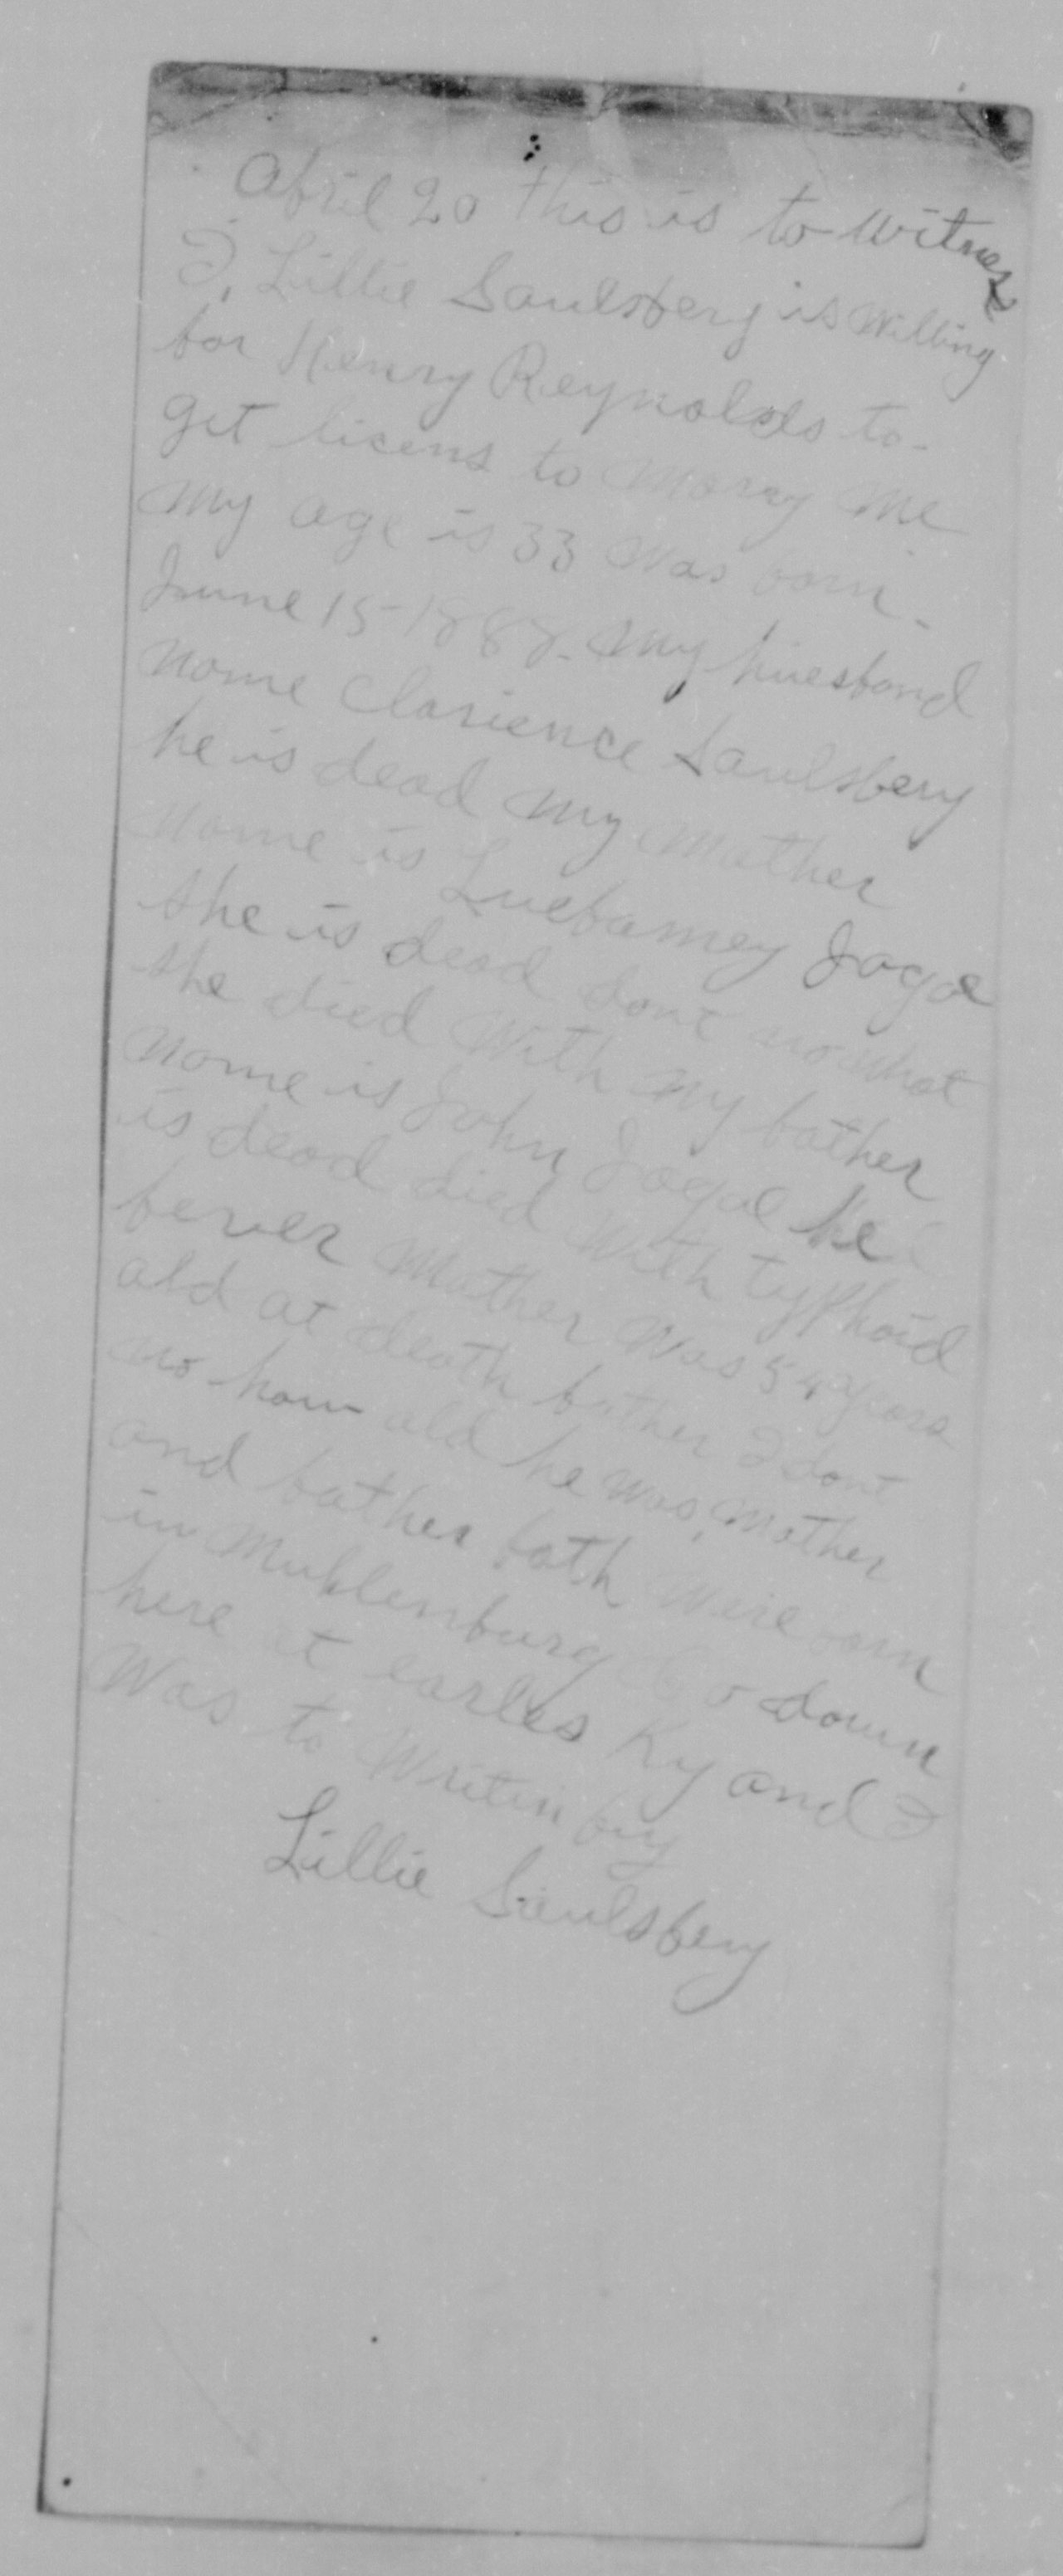 April 20 this is to witness
I, Lillie Saulsbery is willing
for Henry Reynolds to
get licens to marry me
my age is 33 was born
June 15 1888 my huesband
name Clarience Saulsbery
he is dead my mother
name is Luebamey Jagoe
she is dead dont no what
she died with my father
name is John Jagoe he
is dead died with typhoid
ferver mother was 54 years
old at death father I dont
no how old he was, mother
and father both were born
in Muhlenburg Co down
here at earles Ky and I
was to writin by
Lillie Saulsbery